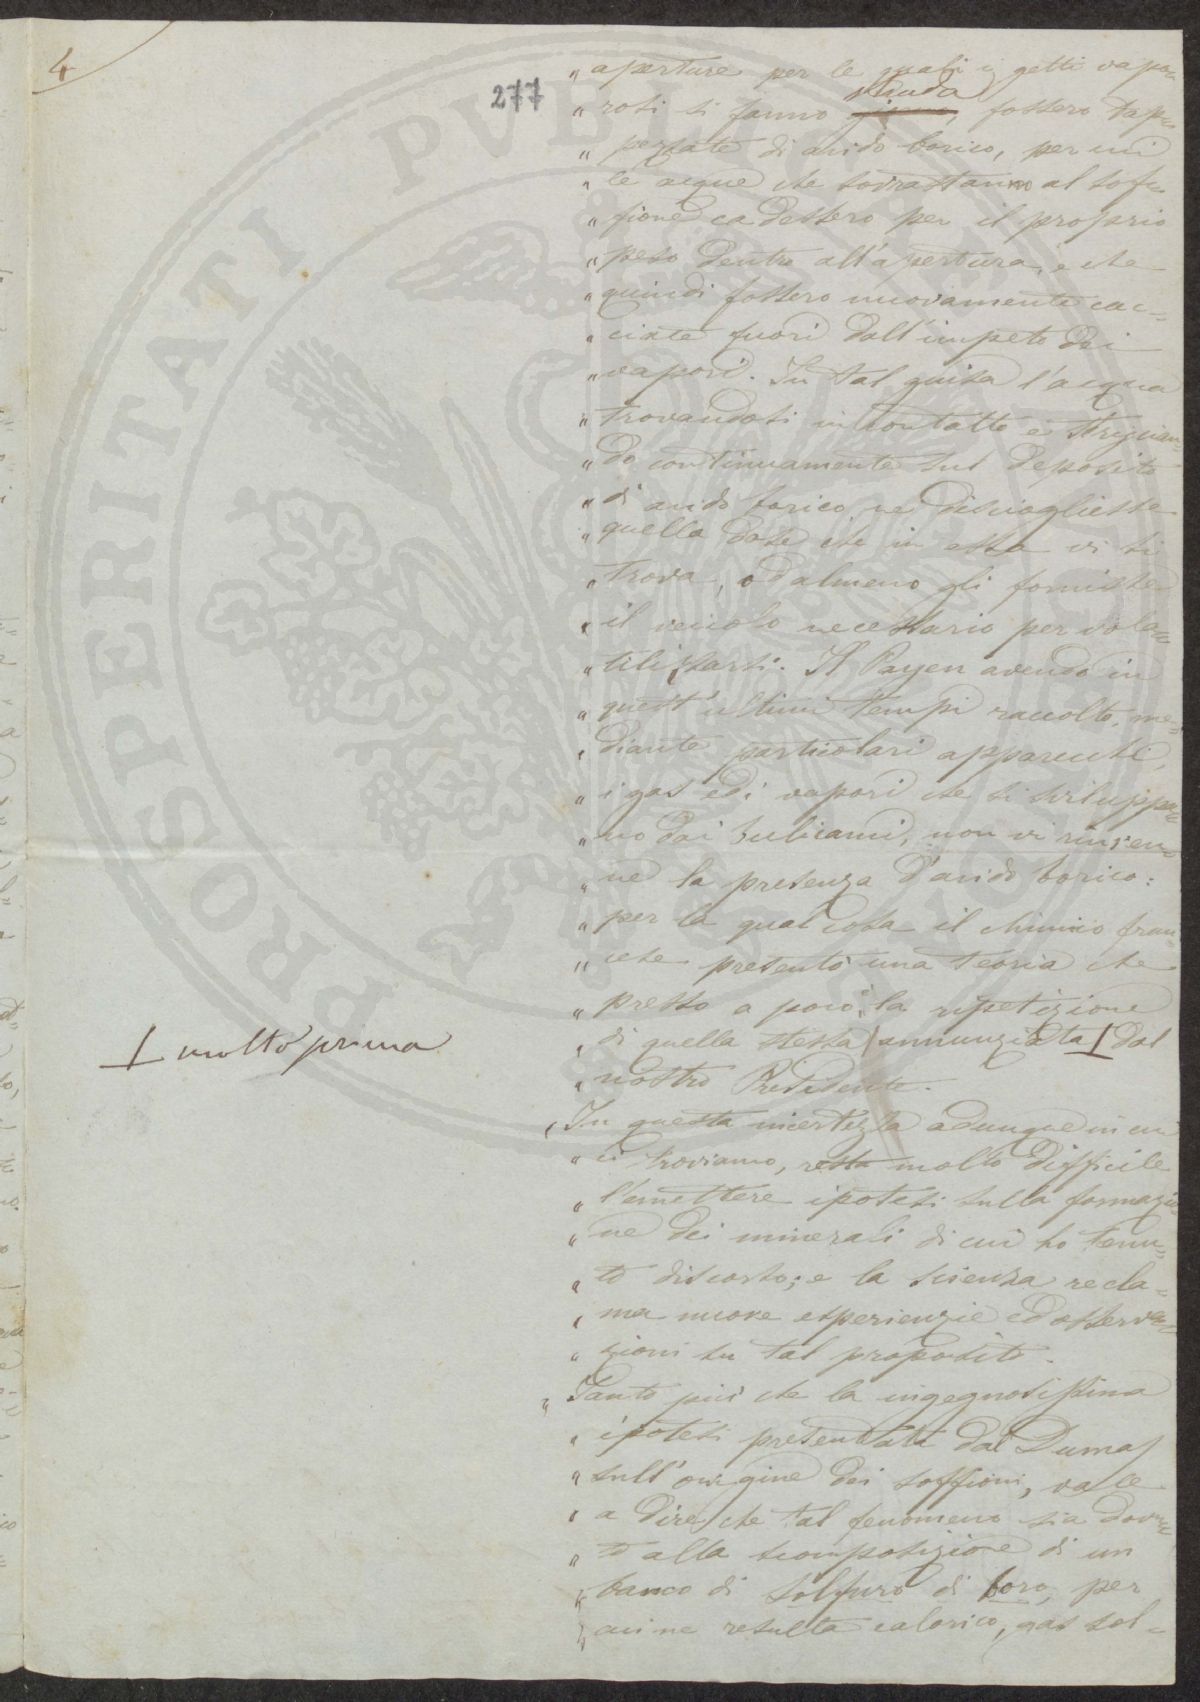 4
277
" aperture per le quali i getti vapo=
" rosi si fanno strada, fossero tap=
" pezzate di acido borico, per cui
" le acque che sovrastanno al soffi=
" fione cadessero per il proprio
" peso dentro all'apertura, e che
" quindi fossero nuovamente cac=
" ciate fuori dall'impeto dei
" vapori. In tal guisa l'acqua
" trovandosi in contatto e strizian=
" do continuamente sul deposito
" di acido borico ne disciogliesse
" quella dose che in essa vi si
" trova, o d almeno gli fornisse
" il veicolo necessario per vola=
" tilizzarsi. Il Payen avendo in
" quest'ultimi tempi raccolto, me=
" diante particolari apparecchi,
" i gas ed i vapori che si sviluppa=
" no dai bulicami, non vi rinven=
" ne la presenza d'acido borico:
" per la qual cosa il chimico fran=
" cese presentò una teoria che
" presso a poco è la ripetizione
" di quella stessa annunziata dal
molto prima
" nostro Presidente.
" In questa incertezza adunque in cui
" ci troviamo, resta molto difficile
" l'emettere ipotesi sulla formazio=
" ne dei minerali di cui ho tenu=
" to discorso; e la scienza recla=
" ma nuove esperienzie ed osserva=
" zioni su tal proposito.
" Tanto più che la ingegnosissima
" ipotesi presentata dal Dumas
" sull'origine dei soffioni, vale
" a dire, che tal fenomeno sia dovu=
" to alla scomposizione di un
" banco di solfuro di boro, per
" cui ne resulta calorico, gas sol=